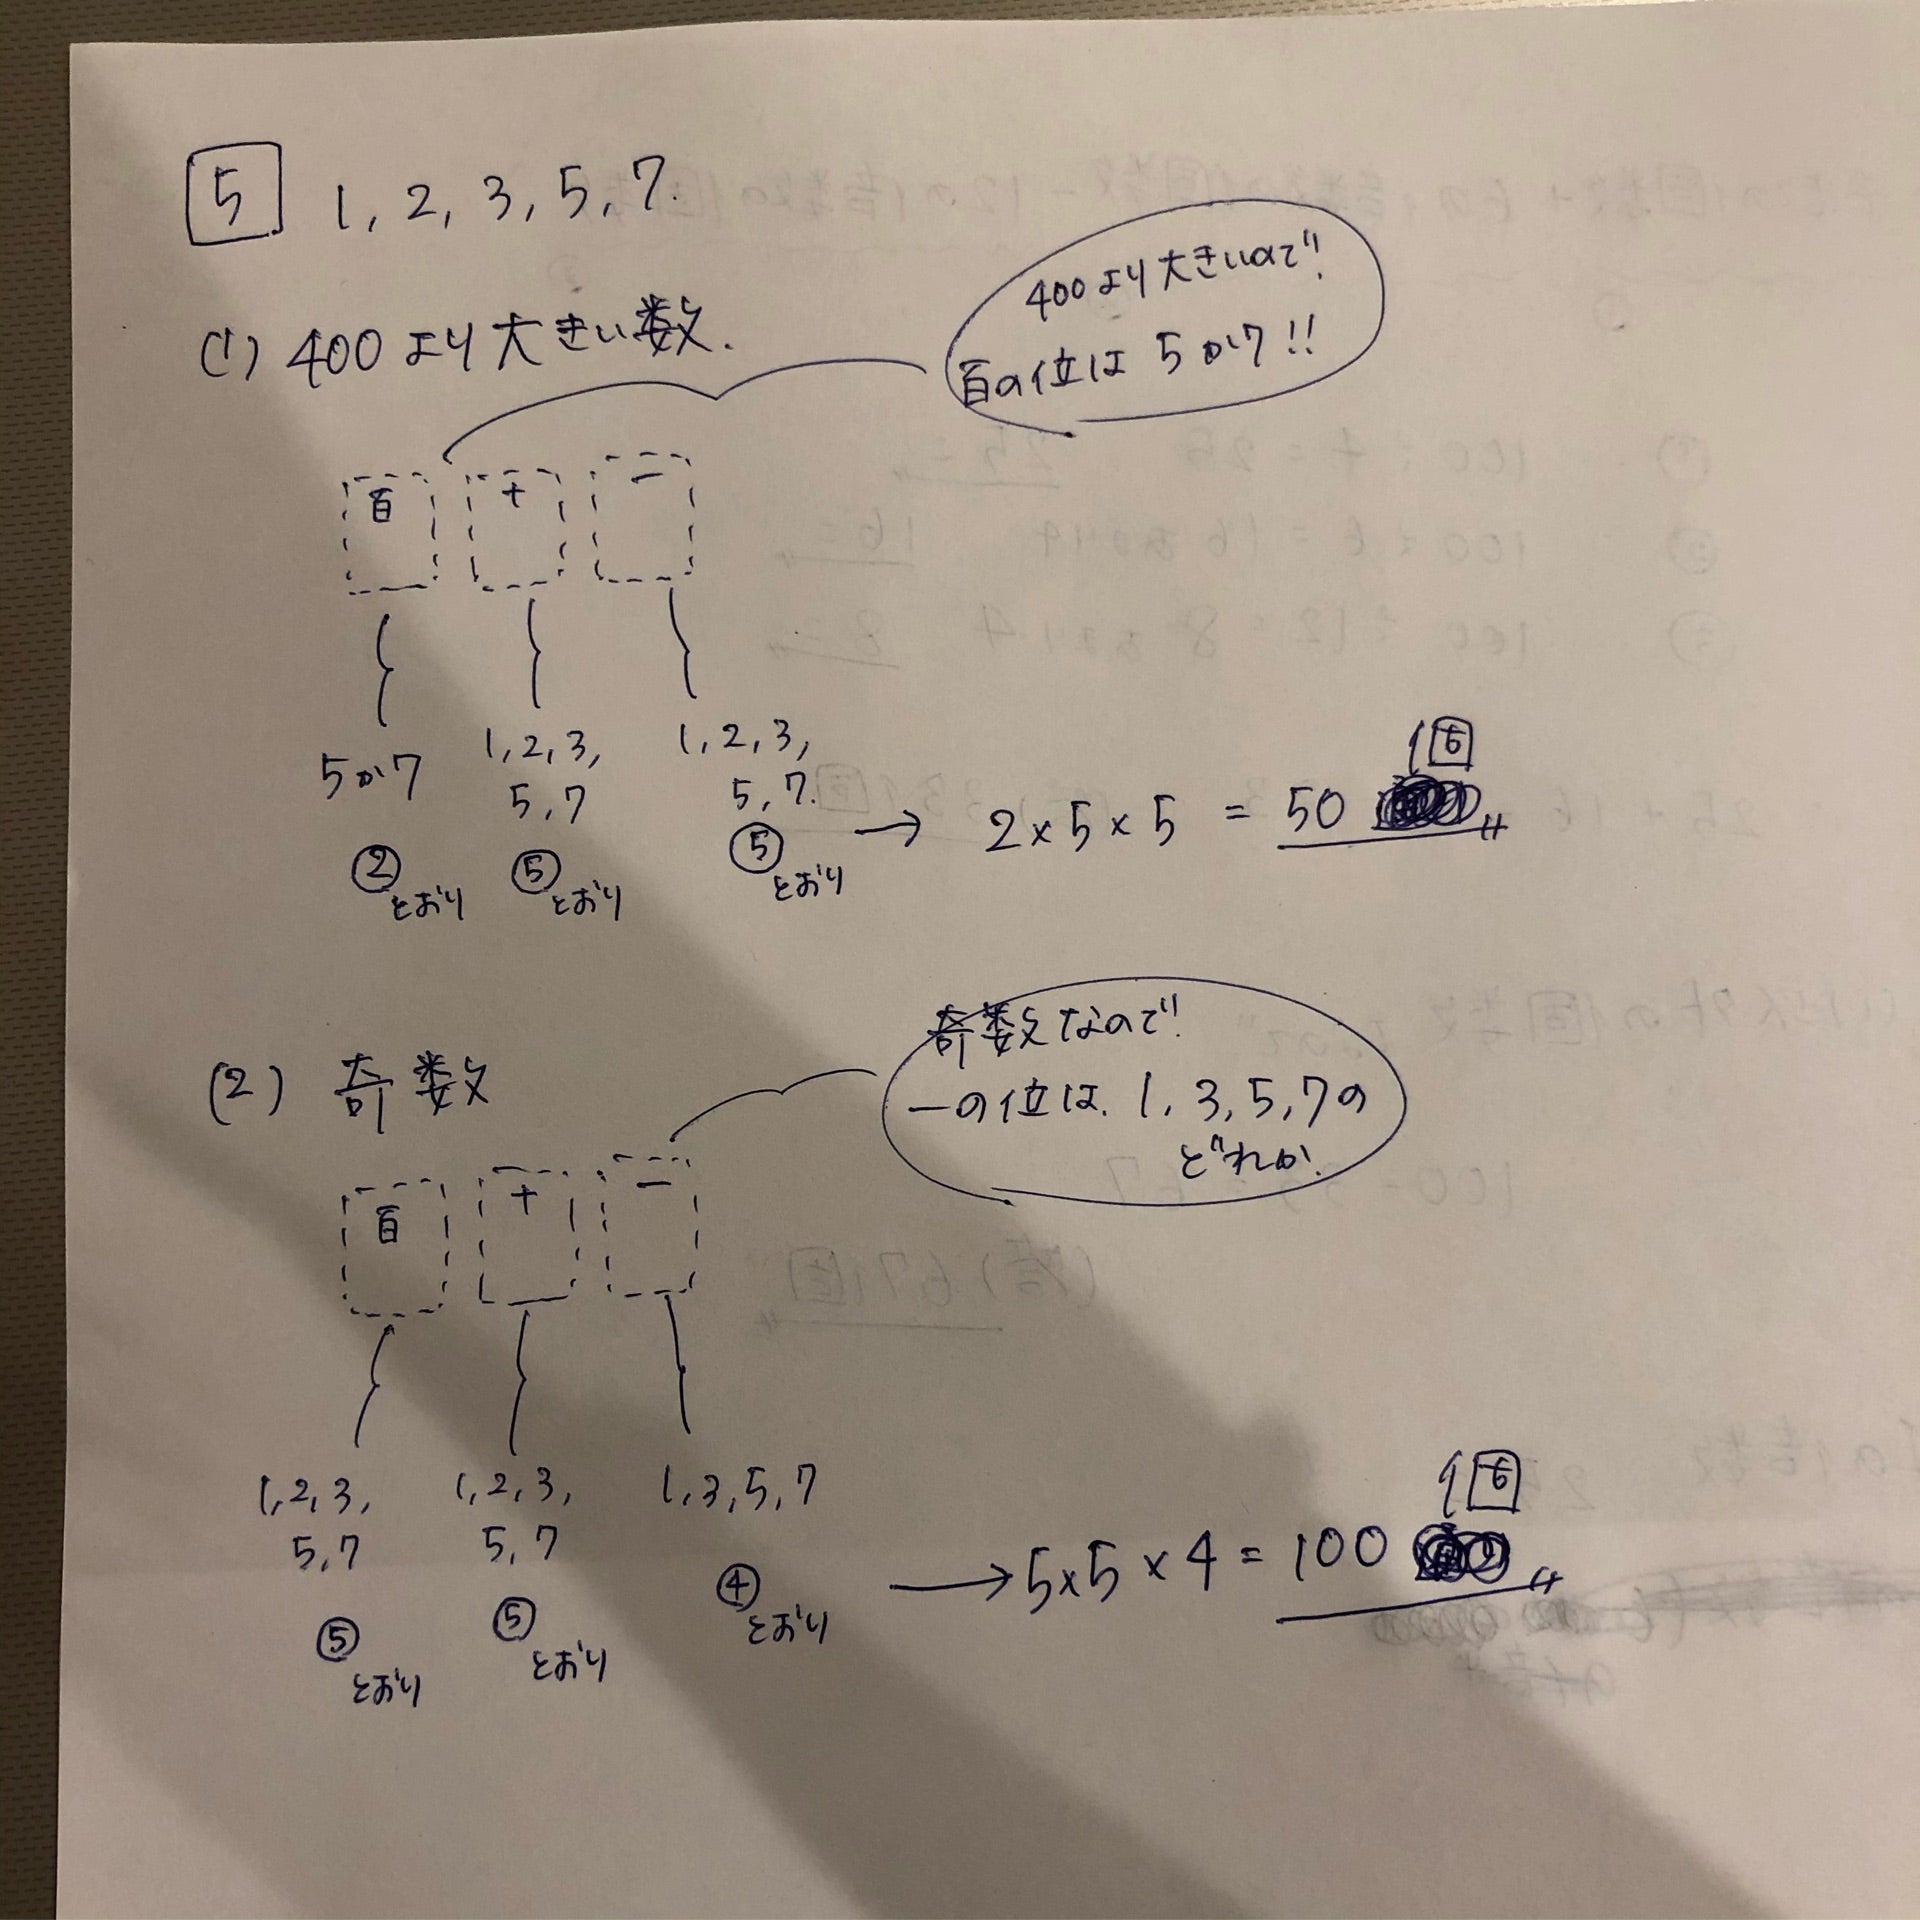 5 1, 2, 3, 5, 7.
(1) 400より大きい数.
400より大きいので!
百の位は 5か7!!
百 十 一
5か7
1, 2, 3,
5, 7
1, 2, 3,
5, 7.
② とおり
⑤ とおり
⑤ とおり
→ 2×5×5 = 50 個
(2) 奇数
奇数なので!
一の位は. 1, 3, 5, 7の
どれか.
百 十 一
1, 2, 3,
5, 7
1, 2, 3,
5, 7
1, 3, 5, 7
⑤ とおり
⑤ とおり
④ とおり
→ 5×5×4 = 100 個